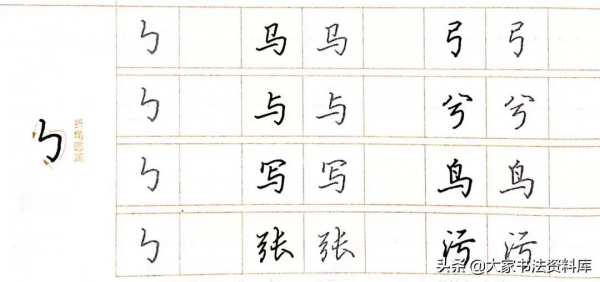 ㄅ 马 马 弓 弓
ㄅ 与 与 兮 兮
ㄅ 折角圆润
ㄅ 写 写 鸟 鸟
ㄅ 张 张 污 污
头条 @大家书法资料库